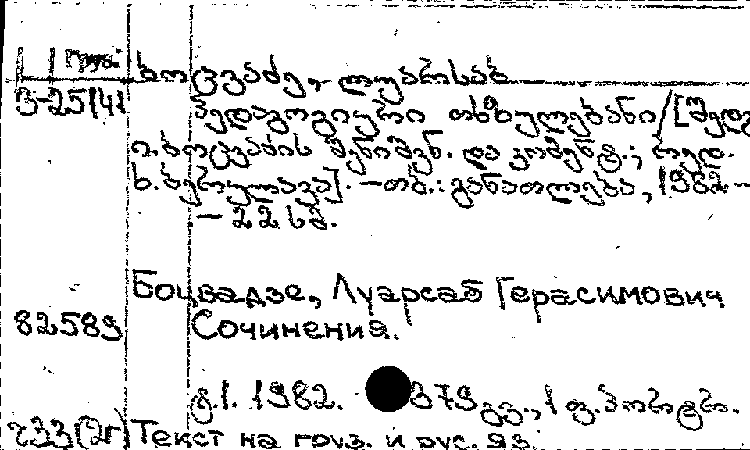 Груз.
ბოცვაძე, ლუარსაბ
3-25141 პედაგოგიური თხზულებანი/[შედგ
ი. ბოცვაძის შენიშვნ. და კომენტ.; რედ.
ხ. ბერულავა]. —თბ.: განათლება, 1982 —
— 22 სმ.
Боцвадзе, Луарсаб Герасимович
82589 Сочинения.
ტ.1. 1982. 379 გვ., 1 ფ. პორტრ.
Текст на груз. и рус. яз.